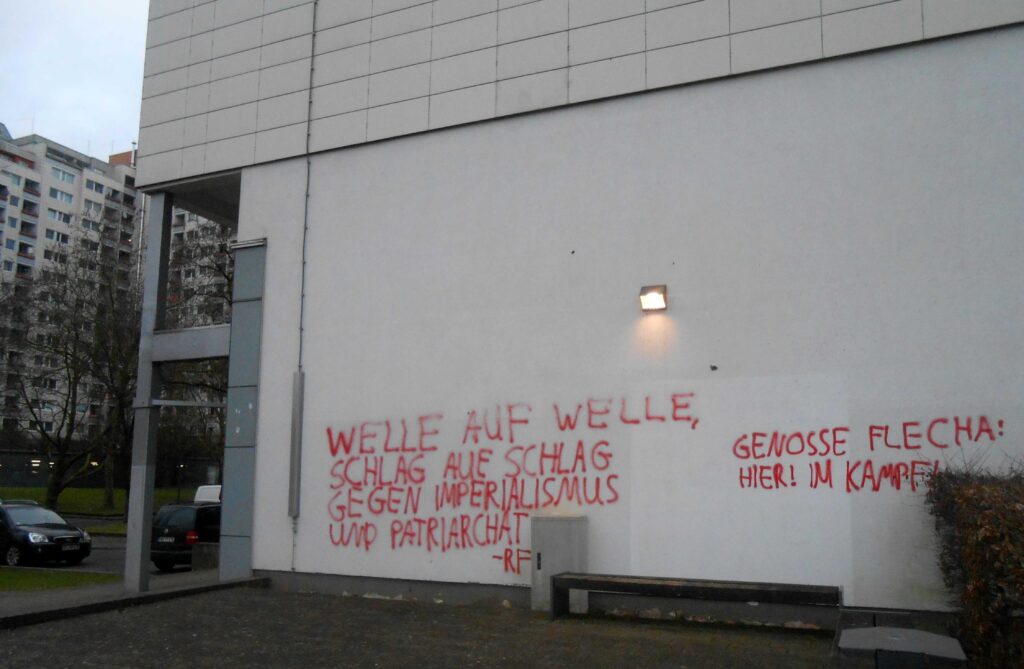 WELLE AUF WELLE,
SCHLAG AUF SCHLAG
GEGEN IMPERIALISMUS
UND PATRIARCHAT
-RF
GENOSSE FLECHA:
HIER! IM KAMPF!